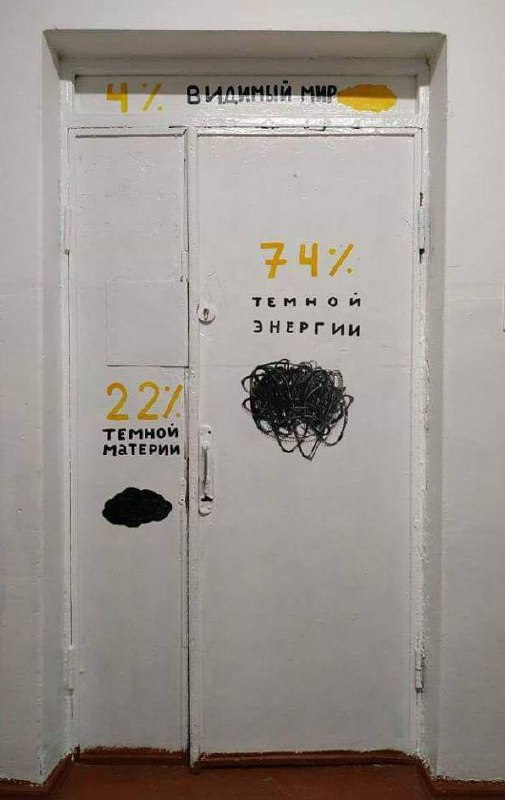 4% ВИДИМЫЙ МИР
74%
ТЕМНОЙ
ЭНЕРГИИ
22%
ТЕМНОЙ
МАТЕРИИ